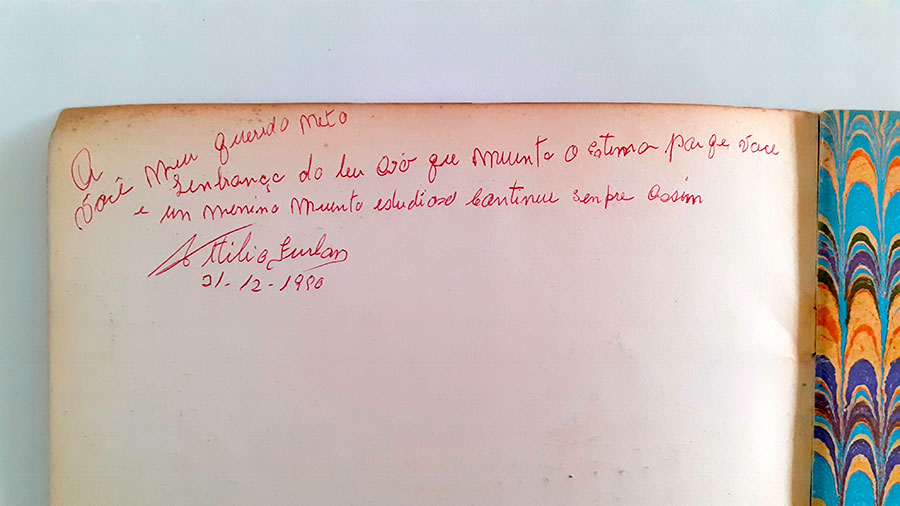 A
Você meu querido neto
Lenbrança do teu avô que muinto o estima porqe voce
e un menino muinto estudioso Continue senpre assim
Atilio Furlan
21-12-1980